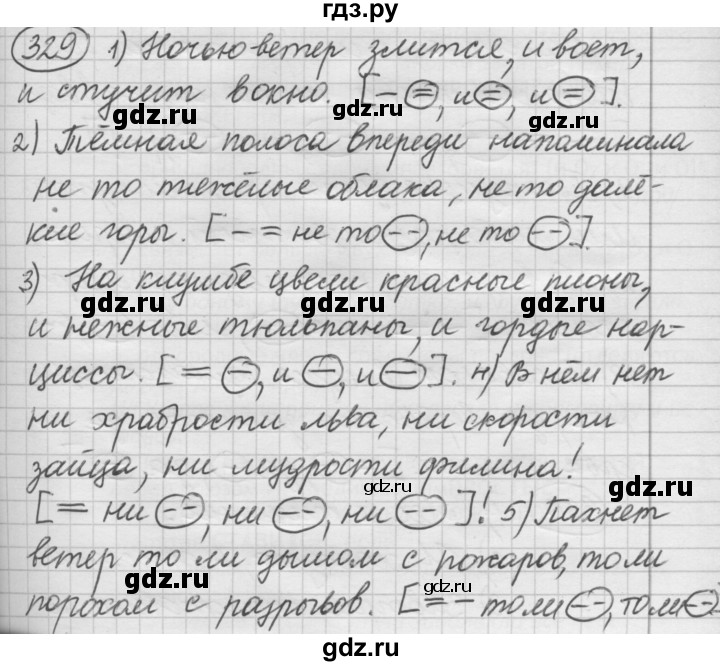 гдз.ру
329 1) Ночью ветер злится, и воет,
и стучит в окно. [– =, и =, и =].
gdz.ru gdz.ru
2) Тёмная полоса впереди напоминала
не то тяжёлые облака, не то далё-
кие горы. [– = не то --, не то --].
gdz.ru gdz.ru
3) На клумбе цвели красные пионы,
gdz.ru gdz.ru
и нежные тюльпаны, и гордые нар-
циссы. [= –, и –, и –]. 4) В нём нет
ни храбрости льва, ни скорости
зайца, ни мудрости филина!
gdz.ru
[= ни --, ни --, ни --]! 5) Пахнет
gdz.ru
ветер то ли дымом с пожаров, то ли
gdz.ru gdz.ru
порохом с разрывов. [= – то ли --, то ли --].
gdz.ru